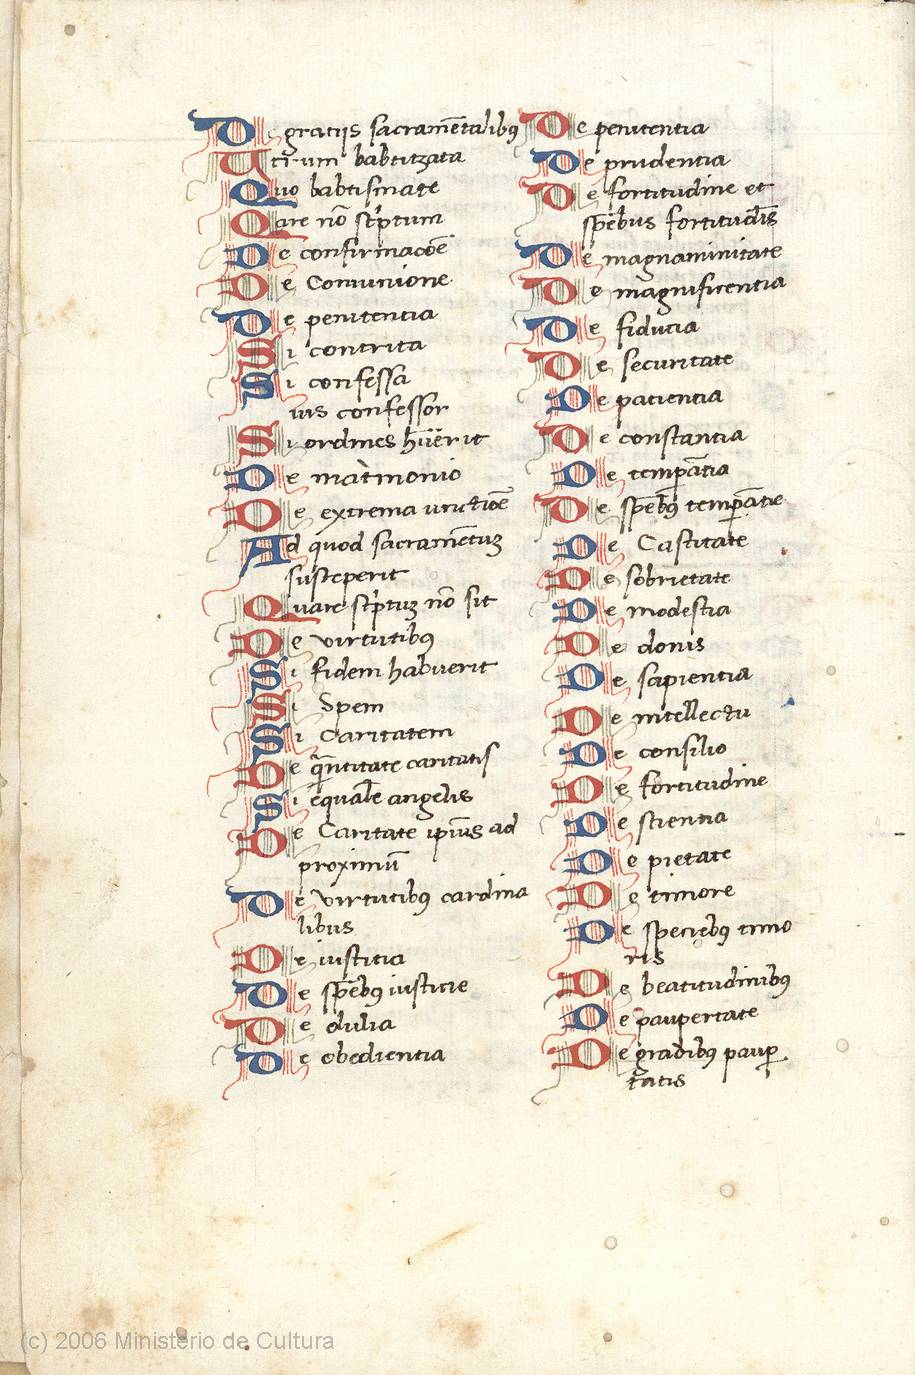 De gratijs sacramētalibꝰ
Utrum babtizata
Quo babtismate
Qare nō scͥptum
De confirmacōe
De Comunione
De penitentia
Si contrita
Si confessa
uis confessor
Si ordines hūerit
De matͥmonio
De extrema unctiōe
Ad quod sacramētuꝫ
susceperit
Quare scͥptuꝫ nō sit
De virtutibꝰ
Si fidem habuerit
Si Spem
Si Caritatem
De qͣntitate caritatis
Si equalē angelis
De Caritate ipiūs ad
proximū
De virtutibꝰ cardina
libus
De iusticia
De spēbꝰ iusticie
De dulia
De obedientia
De penitentia
De prudentia
De fortitudine et
spēbus fortitudīs
De magnaminitate
De magnificentia
De fiducia
De securitate
De patientia
De constantia
De temꝑātia
De spēbꝰ temꝑātie
De Castitate
De sobrietate
De modestia
De donis
De sapientia
De intellectu
De consilio
De fortitudine
De scientia
De pietate
De timore
De speciebꝰ timo
ris
De beatitudinibꝰ
De paupertate
De gradibꝰ pauꝑ
tatis
(c) 2006 Ministerio de Cultura